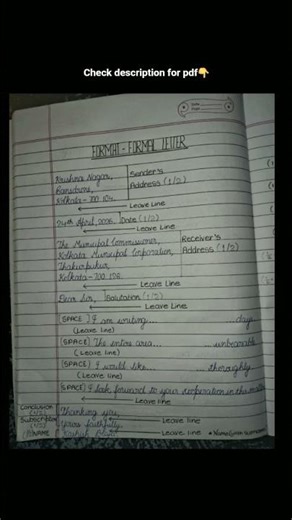 Check description for pdf👇
FORMAT - FORMAL LETTER
Krishna Nagar, Sender's
Address (1/2)
Kolkata - 700 104.
Leave Line
24th April, 2026. Date (1/2)
Leave Line
The Municipal Commissioner, Receiver's
Kolkata Municipal Corporation, Address (1/2)
Thakurpukur,
Kolkata - 700 104.
Leave Line
Dear Sir, Salutation (1/2)
Leave Line
(SPACE) I am writing... ...days.
(Leave line)
(SPACE) The entire area... ...unbearable
(Leave line)
(SPACE) I would like... ...thoroghly.
(Leave line)
(SPACE) I look forward to your cooperation in the matter.
Leave line
Conclusion Thanking you,
Leave line
Yours faithfully,
Leave line
NAME